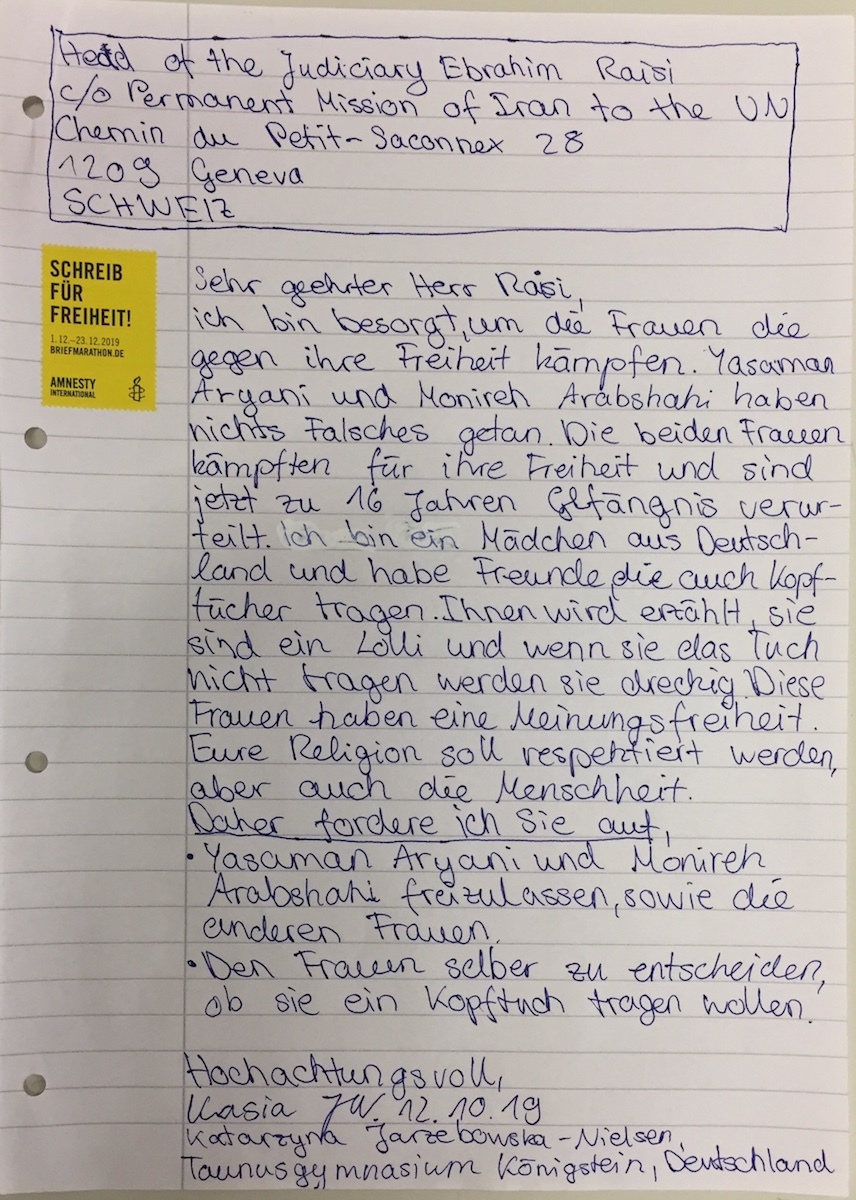 Head of the Judiciary Ebrahim Raisi
c/o Permanent Mission of Iran to the UN
Chemin du Petit-Saconnex 28
1209 Geneva
SCHWEIZ
SCHREIB
FÜR
FREIHEIT!
1.12.–23.12.2019
BRIEFMARATHON.DE
AMNESTY
INTERNATIONAL
Sehr geehrter Herr Raisi,
ich bin besorgt, um die Frauen die
gegen ihre Freiheit kämpfen. Yasaman
Aryani und Monireh Arabshahi haben
nichts Falsches getan. Die beiden Frauen
kämpften für ihre Freiheit und sind
jetzt zu 16 Jahren Gefängnis verur-
teilt. Ich bin ein Mädchen aus Deutsch-
land und habe Freunde, die auch Kopf-
tücher tragen. Ihnen wird erzählt, sie
sind ein Lolli und wenn sie das Tuch
nicht tragen werden sie dreckig. Diese
Frauen haben eine Meinungsfreiheit.
Eure Religion soll respektiert werden,
aber auch die Menschheit.
Daher fordere ich Sie auf,
• Yasaman Aryani und Monireh
Arabshahi freizulassen, sowie die
anderen Frauen.
• Den Frauen selber zu entscheiden,
ob sie ein Kopftuch tragen wollen.
Hochachtungsvoll,
Kasia JN. 12.10.19
Katarzyna Jarzebowska-Nielsen,
Taunusgymnasium Königstein, Deutschland